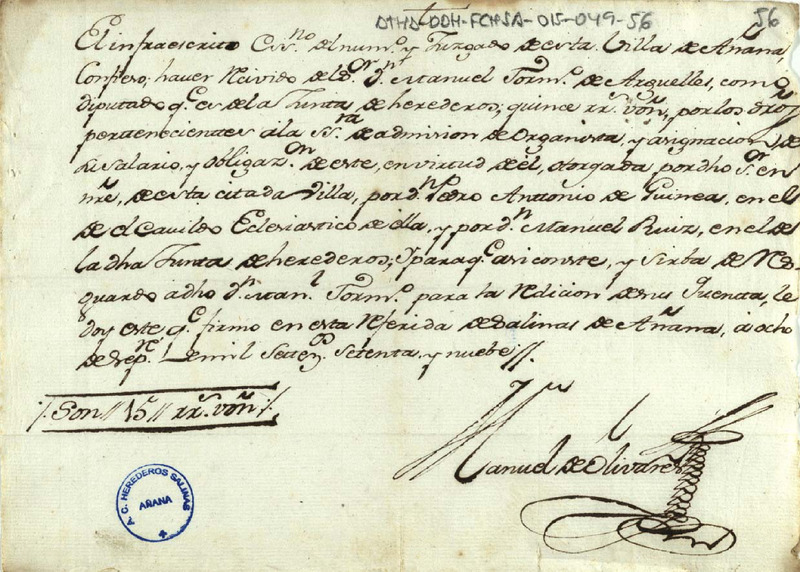 DTHD-DDH-FCHSA-015-049-56
56
El infraescrito Ess.no del num.o y Juzgado de esta Villa de Añana,
Confieso, haver recivido de el s.or d.n Manuel Torm.o de Arguelles, como
diputado q.e es de la Junta de herederos; quince rr.s von, por los dros
pertenecientes á la ss.ra de admision de Organista, y asignacion de
su salario, y obligaz.on de este, en virtud de el, otorgada por dho s.or en
nre, de esta citada Villa, por d.n Pedro Antonio de Guinea, en el
de el Cavildo Eclesiastico de ella, y por d.n Manuel Ruiz, en el de
la dha Junta de herederos; y para q.e asi conste, y sirba de res-
guardo a dho d.n Man.l Torm.o para la redicion de sus Quentas, le
doy este q.e firmo en esta referida de Salinas de Añana, á ocho
de sep.re de mil setez.os setenta, y nuebe //.
/. Son // 15 // rr.s von /.
Manuel de Olivares
A. C. HEREDEROS SALINAS
AÑANA